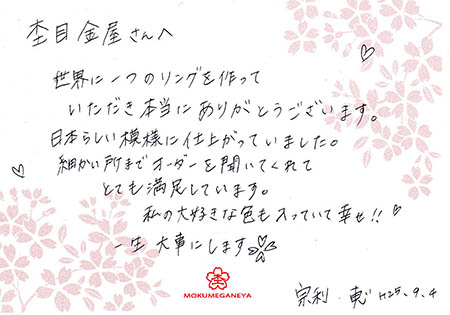 杢目金屋さんへ
世界に一つのリングを作って
いただき本当にありがとうございます。
日本らしい模様に仕上がっていました。
細かい所までオーダーを聞いてくれて
とても満足しています。
私の大好きな色も入っていて幸せ!!
一生大事にします
宗利・恵 H25.9.4
MOKUMEGANEYA